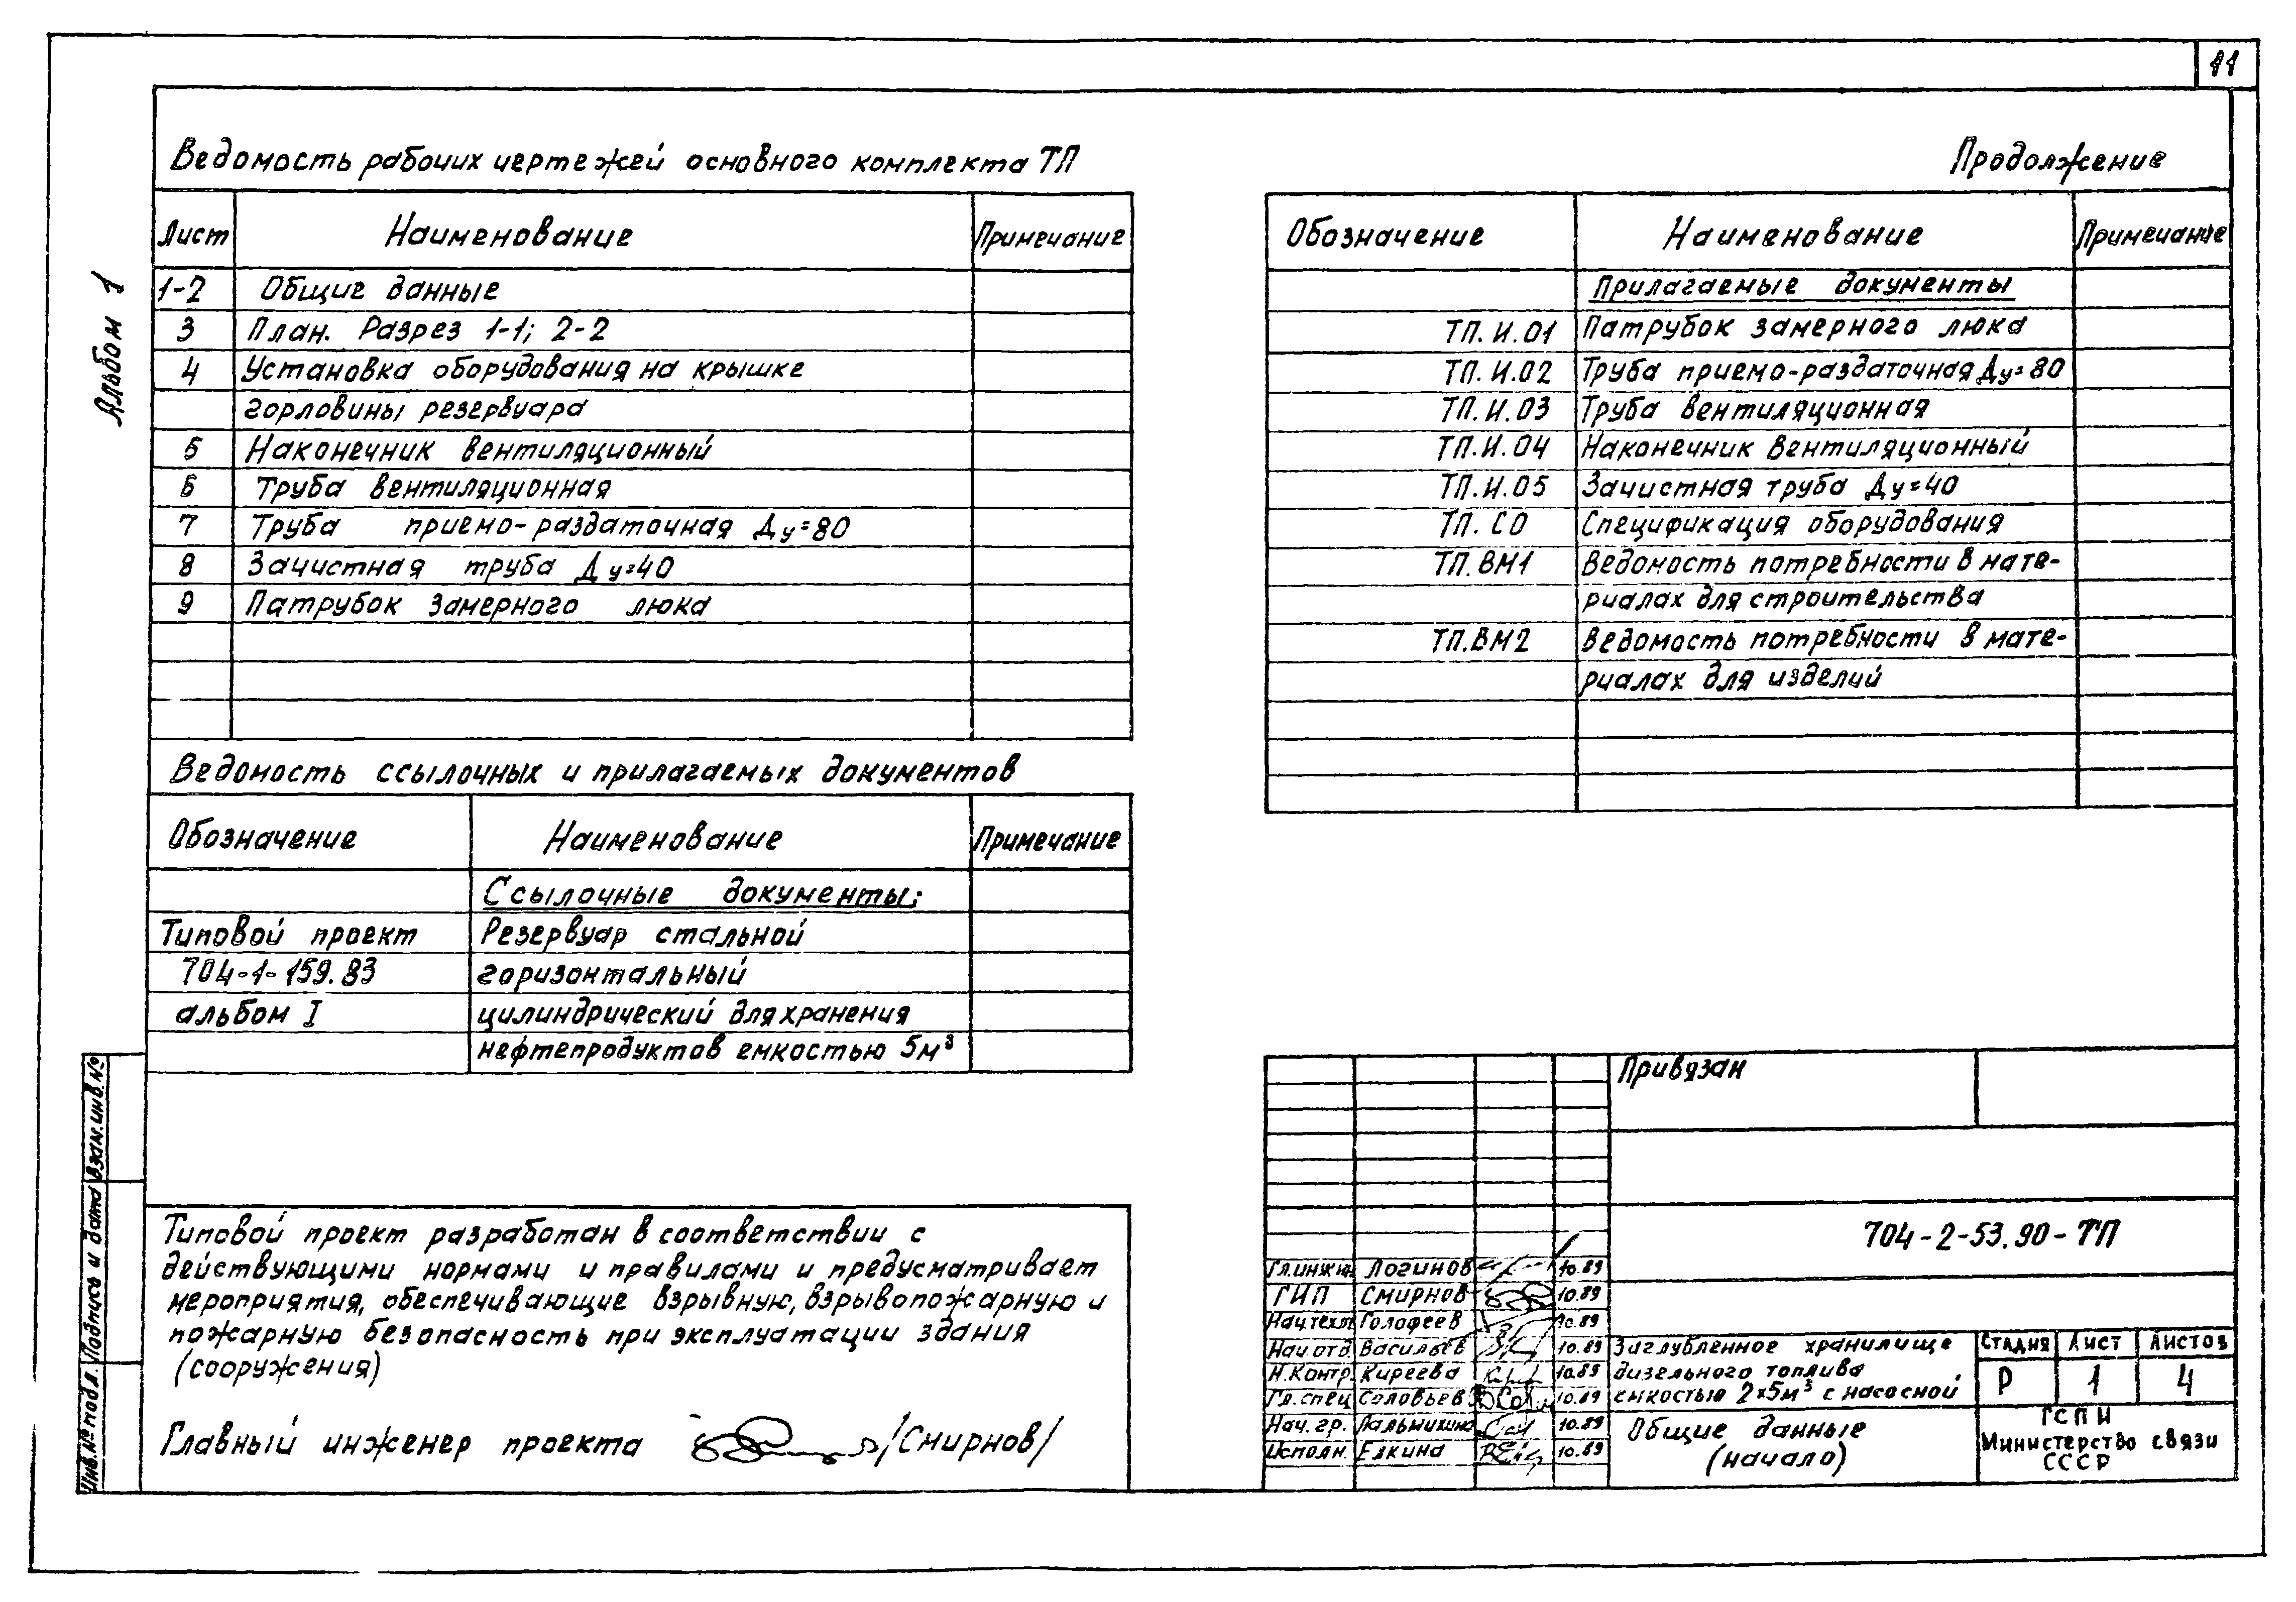 11
Альбом 1
Ведомость рабочих чертежей основного комплекта ТП
Лист Наименование Примечание
1-2 Общие данные
3 План. Разрез 1-1; 2-2
4 Установка оборудования на крышке
горловины резервуара
5 Наконечник вентиляционный
6 Труба вентиляционная
7 Труба приемо-раздаточная Ду=80
8 Зачистная труба Ду=40
9 Патрубок замерного люка
Ведомость ссылочных и прилагаемых документов
Обозначение Наименование Примечание
Ссылочные документы:
Типовой проект Резервуар стальной
704-1-159.83 горизонтальный
альбом I цилиндрический для хранения
нефтепродуктов емкостью 5м³
Типовой проект разработан в соответствии с
действующими нормами и правилами и предусматривает
мероприятия, обеспечивающие взрывную, взрывопожарную и
пожарную безопасность при эксплуатации здания
(сооружения)
Главный инженер проекта /Смирнов/
Продолжение
Обозначение Наименование Примечание
Прилагаемые документы
ТП.И.01 Патрубок замерного люка
ТП.И.02 Труба приемо-раздаточная Ду=80
ТП.И.03 Труба вентиляционная
ТП.И.04 Наконечник вентиляционный
ТП.И.05 Зачистная труба Ду=40
ТП.СО Спецификация оборудования
ТП.ВМ1 Ведомость потребности в мате-
риалах для строительства
ТП.ВМ2 Ведомость потребности в мате-
риалах для изделий
Привязан
704-2-53.90-ТП
Гл.инж.ин. Логинов 10.89
ГИП Смирнов 10.89
Нач.техн Голофеев 10.89
Нач.отд. Васильев 10.89
Н.Контр. Киреева 10.89
Гл.спец Соловьев 10.89
Нач.гр. Пальмихина 10.89
Исполн. Елкина 10.89
Заглубленное хранилище
дизельного топлива
емкостью 2х5м³ с насосной
Общие данные
(начало)
Стадия Лист Листов
Р 1 4
ГСПИ
Министерство связи
СССР
Взам.инв.№
Подпись и дата
Инв.№ подл.